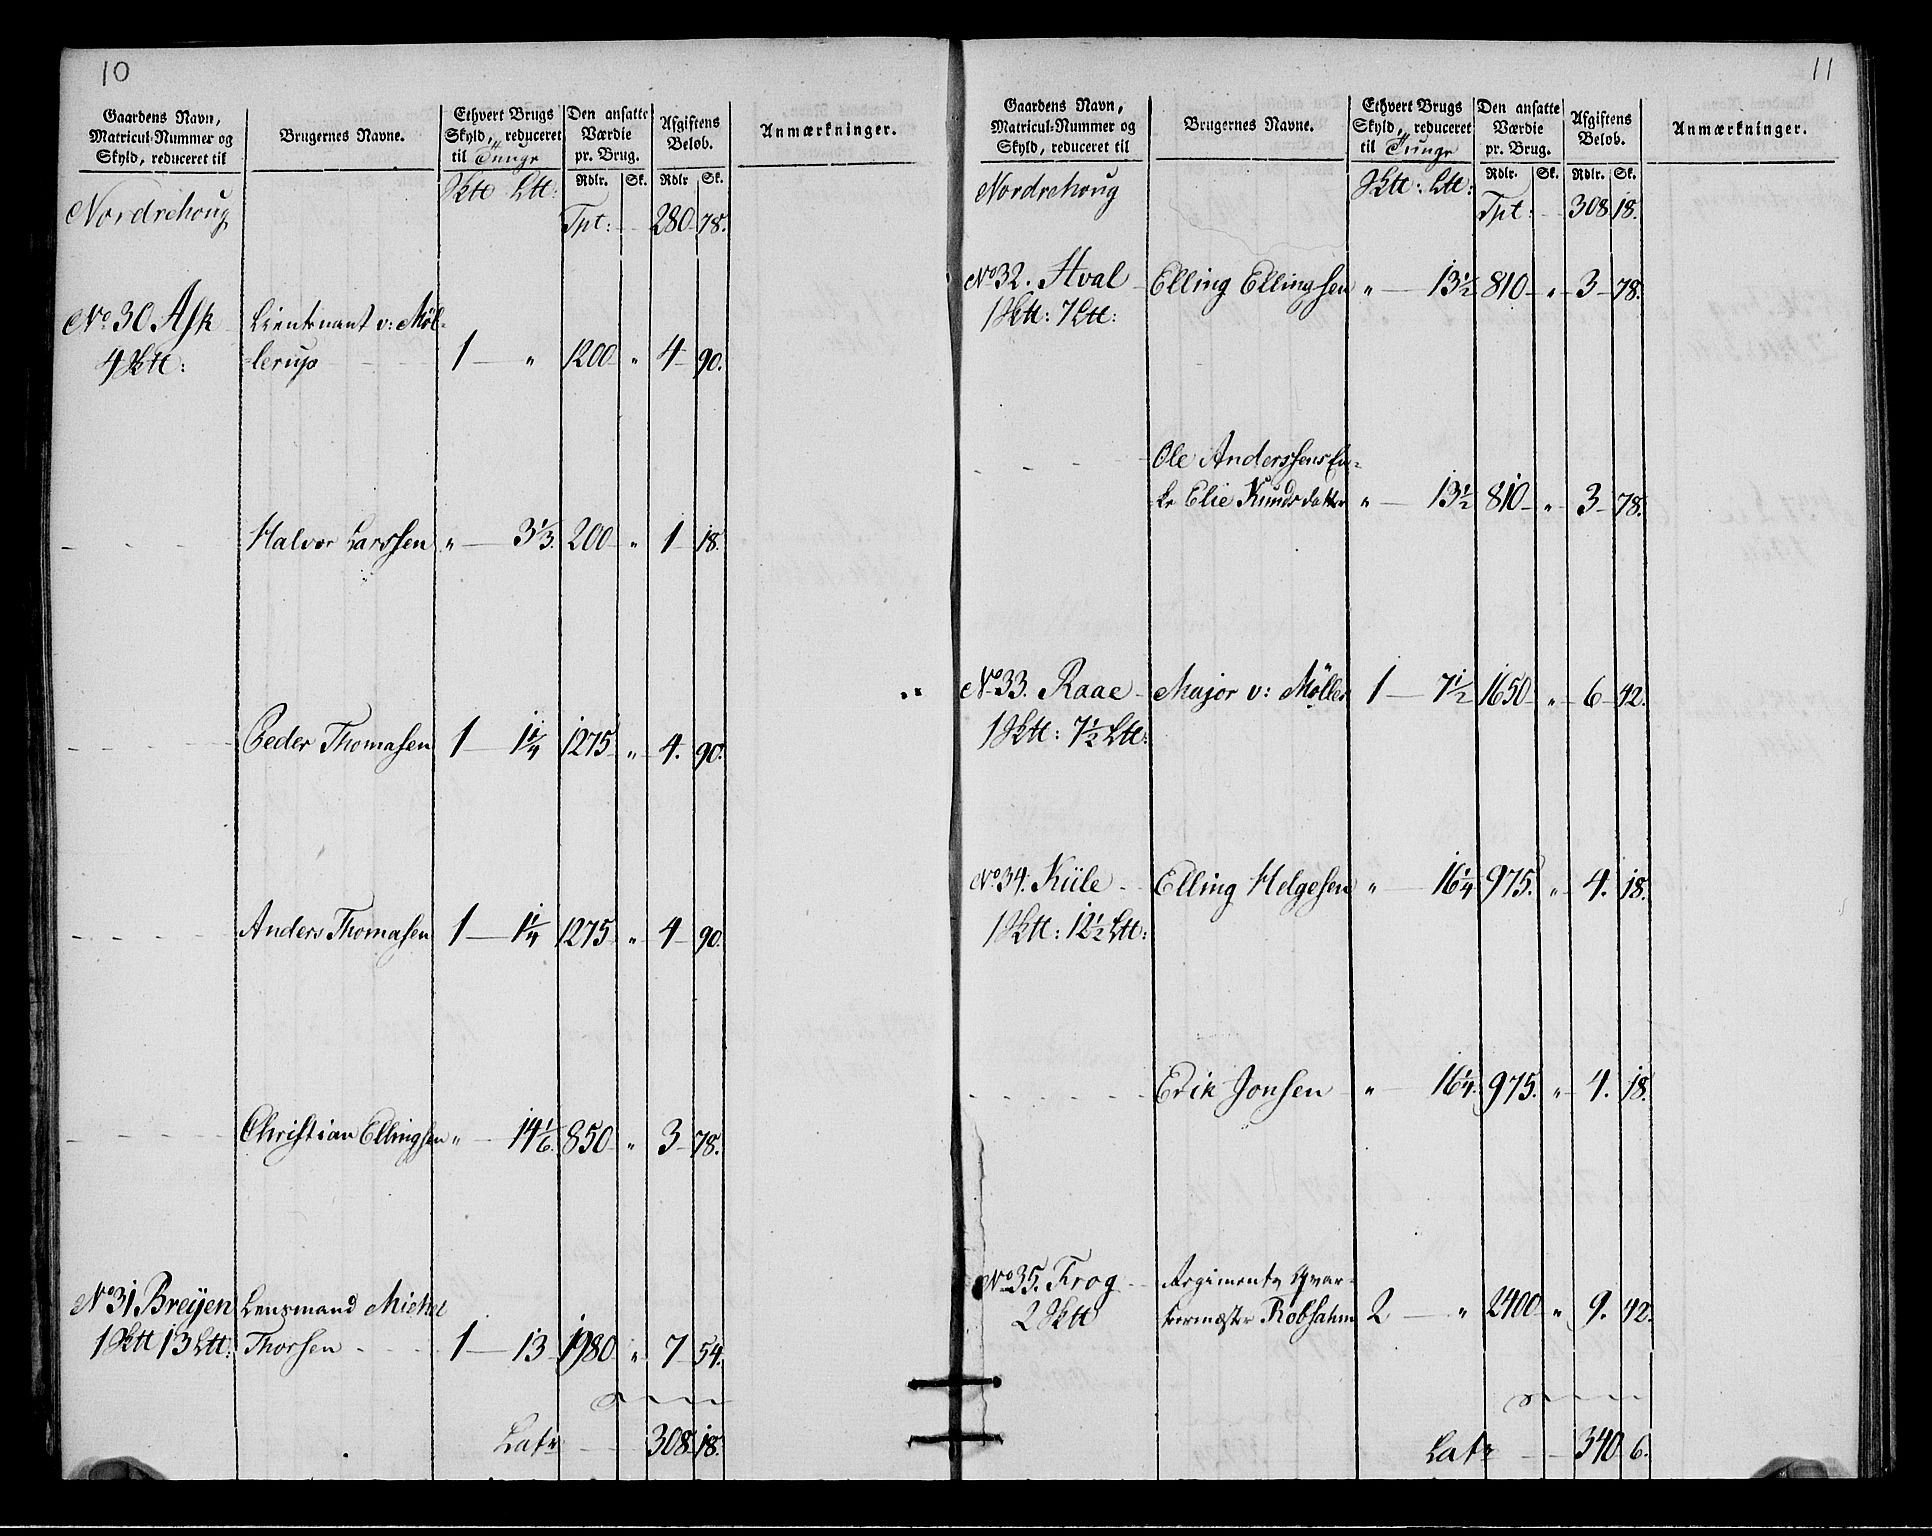 10
Gaardens Navn, Matricul-Nummer og Skyld, reduceret til | Brugernes Navne. | Ethvert Brugs Skyld, reduceret til Tunge | Den ansatte Værdie pr. Brug. | Afgiftens Beløb. | Anmærkninger.
Rdlr. Sk. Rdlr Sk.
Nordrehoug Sktt Ltt: Tpt: 280 78.
No 30 Ask Lieutenant v: Møl-
4 Sktt: lerup 1 — " 1200 " 4 90.
Halvor Larssen " — 3 1/3. 200 " 1 18.
Peder Thomasen 1 — 1 1/4 1275 " 4. 90.
Anders Thomasen 1 — 1 1/4 1275 " 4 90.
Christian Ellingsen " — 14 1/6. 850 " 3 78.
No 31 Breijen Lensmand Michel
1 Sktt 13 Ltt: Thorsen 1 — 13 1980 " 7 54.
Latr 308 18.
11
Gaardens Navn, Matricul-Nummer og Skyld, reduceret til | Brugernes Navne. | Ethvert Brugs Skyld, reduceret til Tunge | Den ansatte Værdie pr. Brug. | Afgiftens Beløb. | Anmærkninger.
Rdlr. Sk. Rdlr. Sk.
Nordrehoug Sktt: Ltt: Tpt: 308 18.
No 32. Hval Elling Ellingsen " — 13 1/2 810 " 3 78.
1 Sktt: 7 Ltt:
Ole Anderssens En-
ke Elie Knudsdatter " — 13 1/2 810 " 3 78.
No 33. Raae Major v: Møller 1 — 7 1/2 1650 " 6 42.
1 Sktt: 7 1/2 Ltt:
No 34. Kiile Elling Helgesen " — 16 1/4 975. " 4. 18.
1 Sktt: 12 1/2 Ltt:
Erik Jonsen " — 16 1/4. 975. " 4. 18.
No 35. Frog Regiments Qvar-
2 Sktt teermester Robsahm 2 — " 2400 " 9. 42.
Latr 340 6.